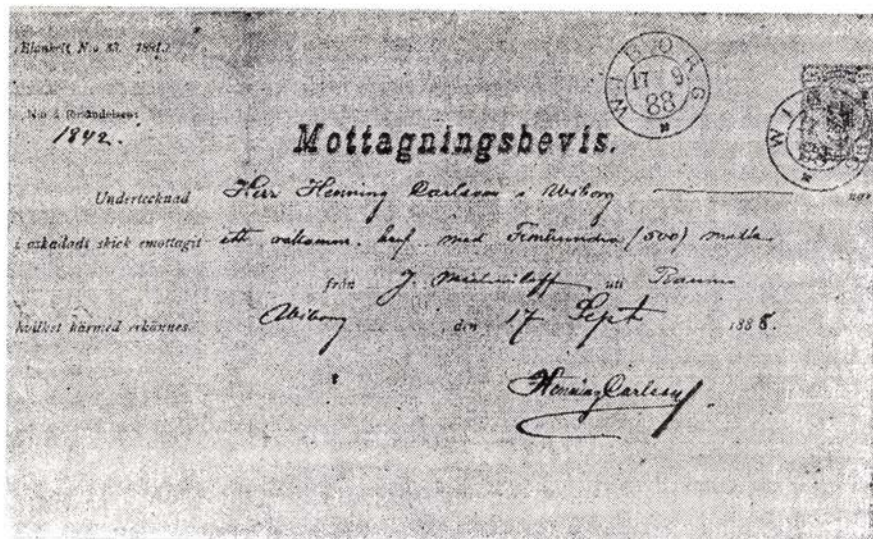 (Blankett N:o 83. 1881.)
WIBORG
17 9
88
N:o å försändelsen:
1842.
WIBORG
Mottagningsbevis.
Undertecknad Herr Henning Carlsson i Wiborg har
i oskadadt skick emottagit ett rekomm. bref med Femhundra (500) mark
från J. utt Raumo
hvilket härmed erkännes. Wiborg den 17 Sept 1888.
Henning Carlsson